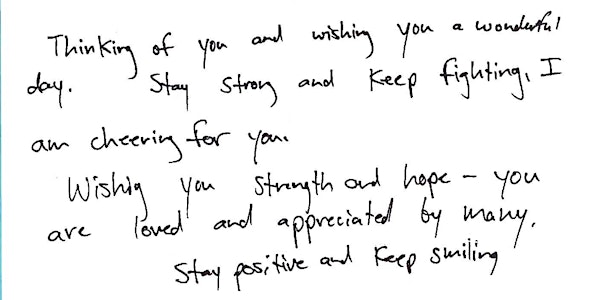 Thinking of you and wishing you a wonderful
day. Stay strong and keep fighting, I
am cheering for you.
Wishig you strength and hope - you
are loved and appreciated by many.
Stay positive and keep smiling